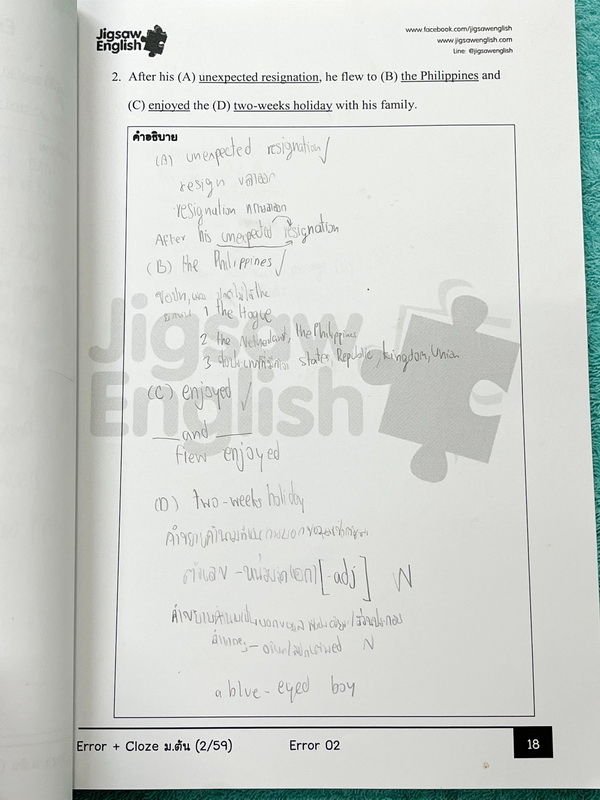 Jigsaw
English
www.facebook.com/jigsawenglish
www.jigsawenglish.com
Line: @jigsawenglish
2. After his (A) unexpected resignation, he flew to (B) the Philippines and
(C) enjoyed the (D) two-weeks holiday with his family.
คำอธิบาย
(A) unexpected resignation ✓
resign ลาออก
resignation การลาออก
After his unexpected resignation
(B) the Philippines ✓
1 the Hague
2 the Netherland, the Philippine
3 States, Republic, Kingdom, Union
Jigsaw
English
(C) enjoyed ✓
___ and ___
flew enjoyed
(D) two-weeks holiday
ตัวเลข - หน่วย [-adj] N
N
a blue-eyed boy
Error + Cloze ม.ต้น (2/59)
Error 02
18